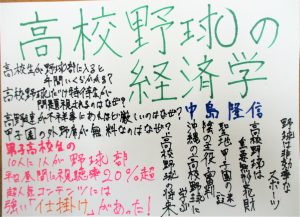 高校野球の
経済学
中島隆信
高校生が野球部に入ると
年間いくらかかる?
高校野球だけ特待生が
問題視されるのはなぜ?
高野連が不祥事にあれほど厳しいのはなぜ?
甲子園の外野席が無料なのはなぜ?
男子高校生の
10人に1人が野球部
平日昼間に視聴率20%超
超人気コンテンツには
強い「仕掛け」があった!
野球は特殊な
スポーツ
高校野球は
重要無形文化財
聖地・甲子園の正体
陰の主役・審判
沖縄の高校野球
高校野球の将来